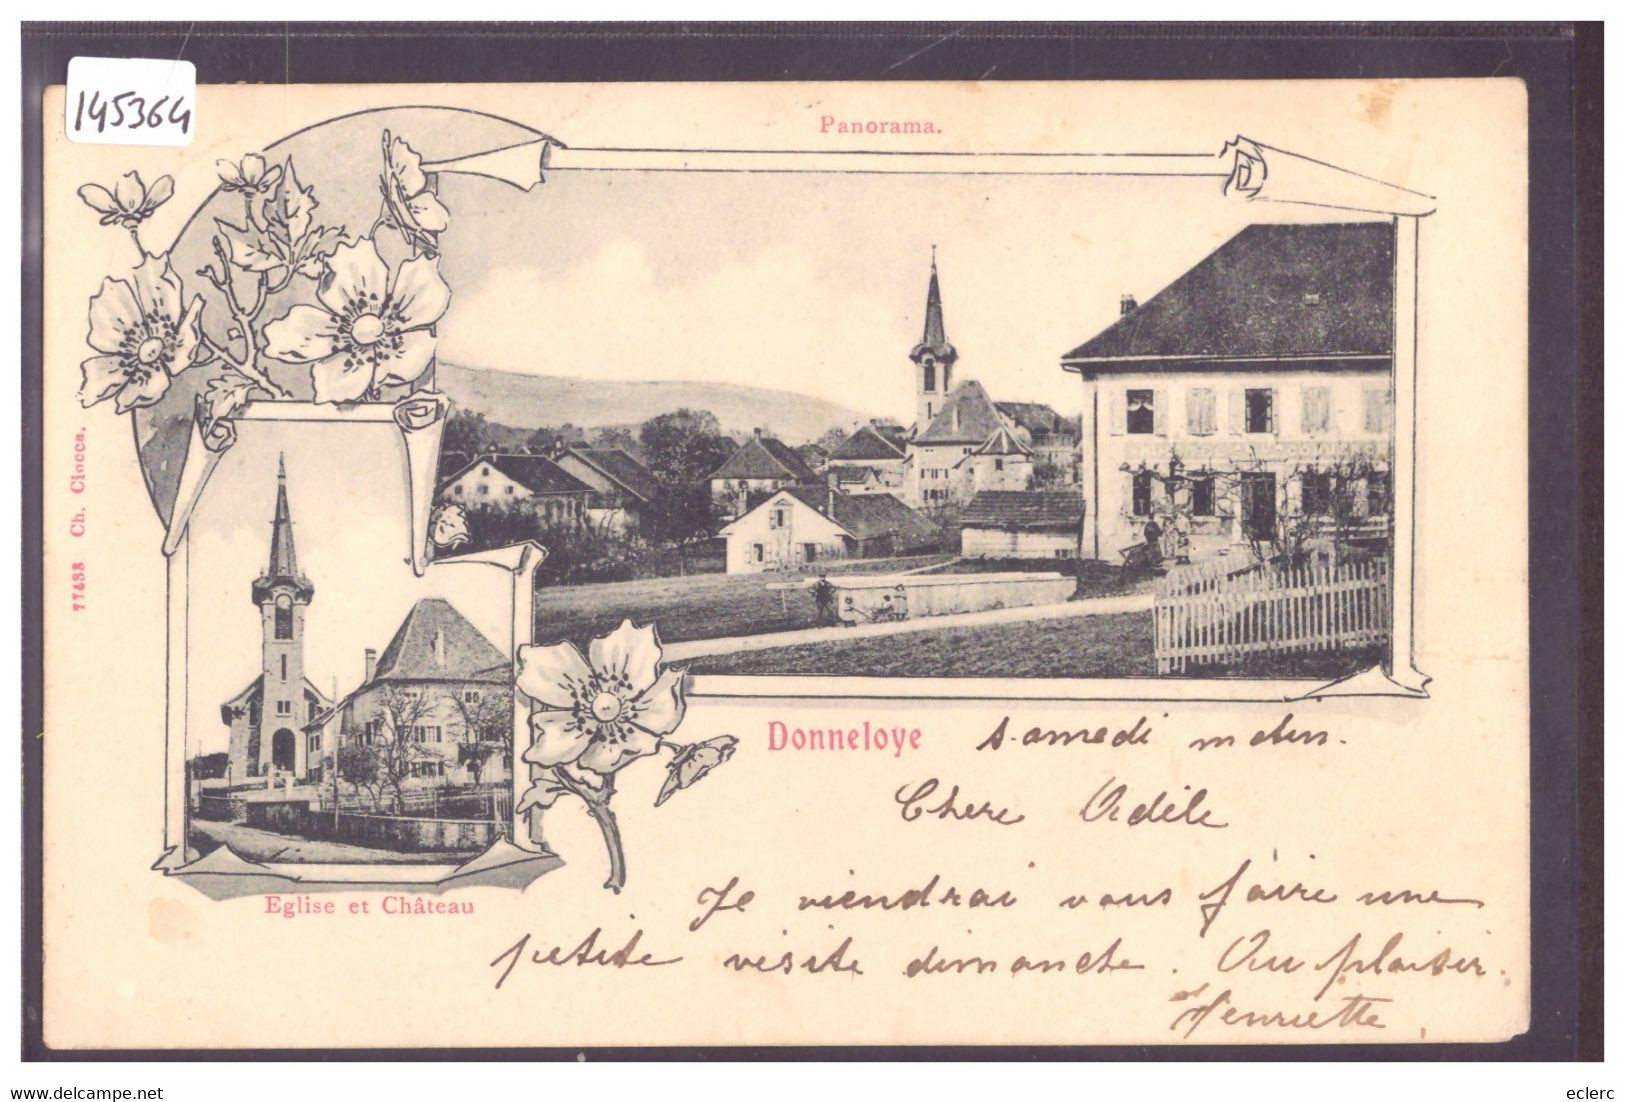 145364
Panorama.
77433 Ch. Ciocca.
Donneloye
Samedi matin.
Chere Adèle
Je viendrai vous faire une
petite visite dimanche. Au plaisir.
Henriette
Eglise et Château
www.delcampe.net
eclerc